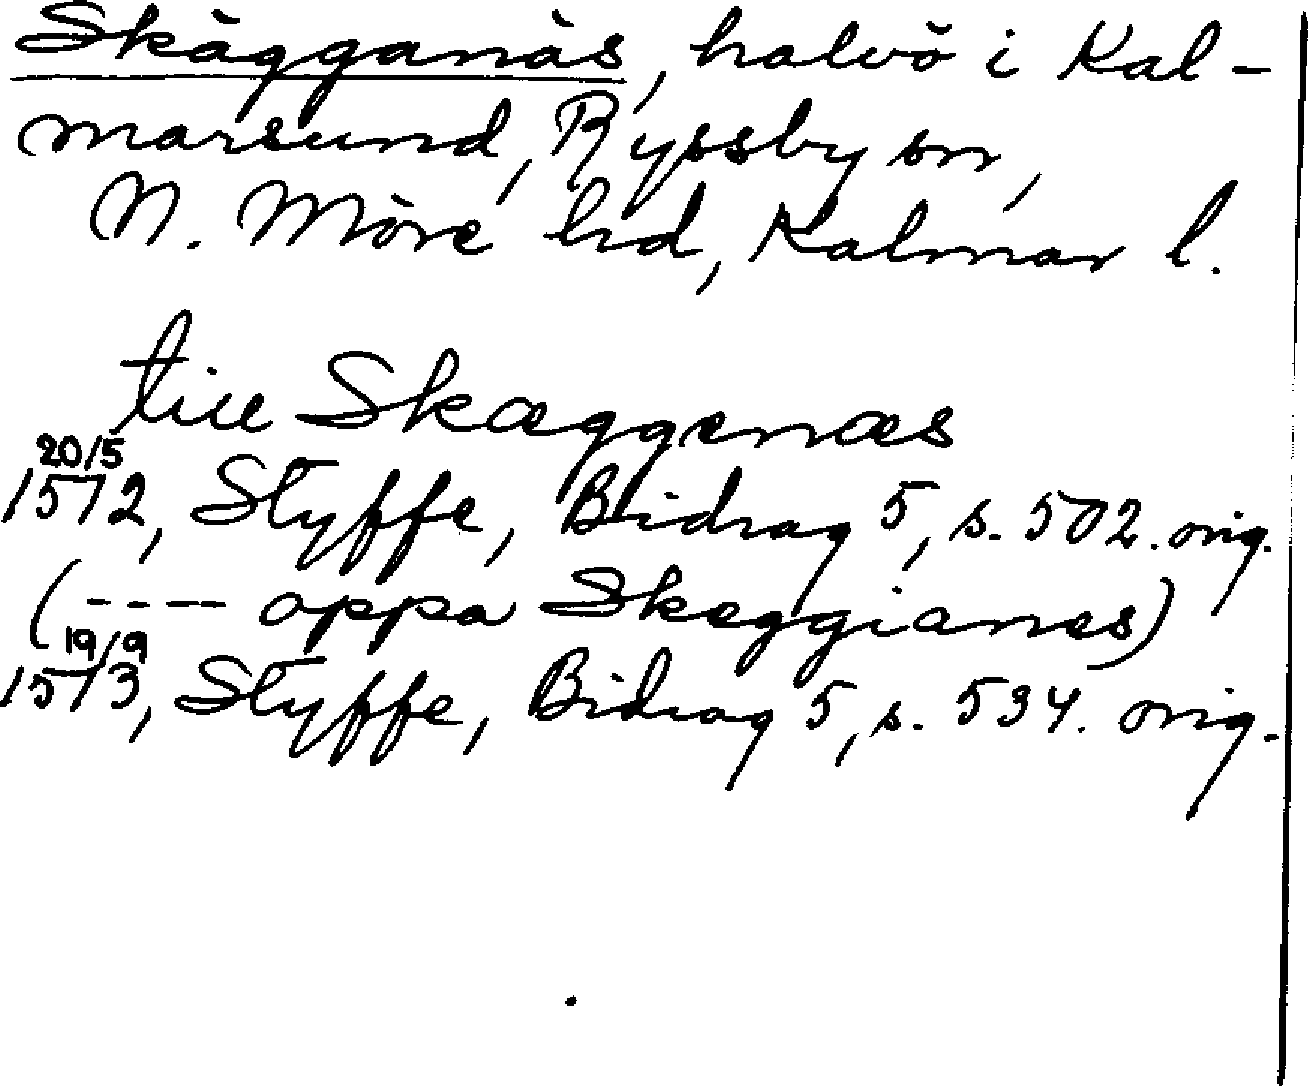 Skägganäs, halvö i Kal-
marsund, Ryssby sn,
N. Möre hd, Kalmar l.
till Skæggenæs
20/5
1512, Styffe, Bidrag 5, s. 502. orig.
(---- oppa Skeggianes)
19/9
1513, Styffe, Bidrag 5, s. 534. orig.